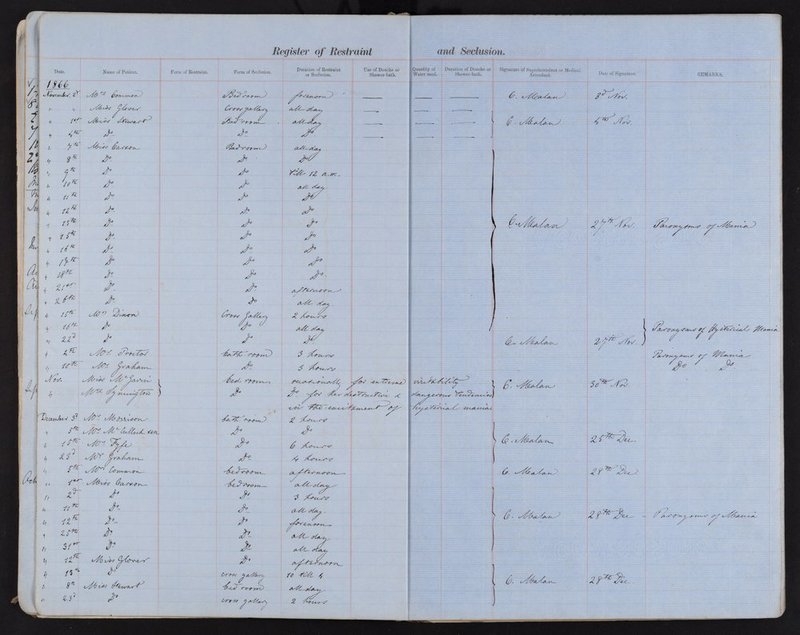 Register of Restraint and Seclusion.
Date. Name of Patient. Form of Restraint. Form of Seclusion. Duration of Restraint or Seclusion. Use of Douche or Shower-bath. Quantity of Water used. Duration of Douche or Shower-bath. Signature of Superintendent or Medical Attendant. Date of Signature. REMARKS.
1866
November 2d Mrs Common Bedroom forenoon — — — 3d Nov.
" " Miss Glover Cross gallery all day — — —
" 1st Miss Stewart Bed room all day — — — 4th Nov.
" 4th Do Do Do — — —
" 7th Miss Carson Bedroom all day
" 8th Do Do Do
" 9th Do Do till 12 a.m.
" 10th Do Do all day
" 11th Do Do Do
" 12th Do Do Do
" 13th Do Do Do 27th Nov. Paroxysms of Mania
" 15th Do Do Do
" 16th Do Do Do
" Do Do Do
" 18th Do Do Do
" 21st Do Do afternoon
" 26th Do Do all day
" 15th Mrs Dixon Cross gallery 2 hours
" 16th Do Do all day Paroxysms of Hysterical Mania
" 22d Do Do Do 27th Nov.
" Mrs Proctor bath room 3 hours Paroxysms of Mania
" 10th Mrs Graham 3 hours Do Do
Nov. Miss bed room occasionally for extreme irritability 30th Nov
" Mrs Symington Do Do for her destructive & dangerous tendencies
in the excitement of hysterical mania
December 3d Mrs Morrison bath room 2 hours
" 5th Mrs Do Do
" 15th Mrs Fyfe Do 6 hours 25th Dec
" 23d Mrs Graham Do 4 hours
" 5th Mrs Common bedroom afternoon 28th Dec
" 1st Miss Carson bedroom all day
" 2d Do Do 3 hours
" 11th Do Do all day
" 12th Do Do forenoon 28th Dec Paroxysms of Mania
" 25th Do Do all day
" 31st Do Do all day
" 12th Miss Glover Do afternoon
" 13th Do cross gallery 10 till 4
" 8th Miss Stewart bed room all day 28th Dec
" 23d Do cross gallery 2 hours